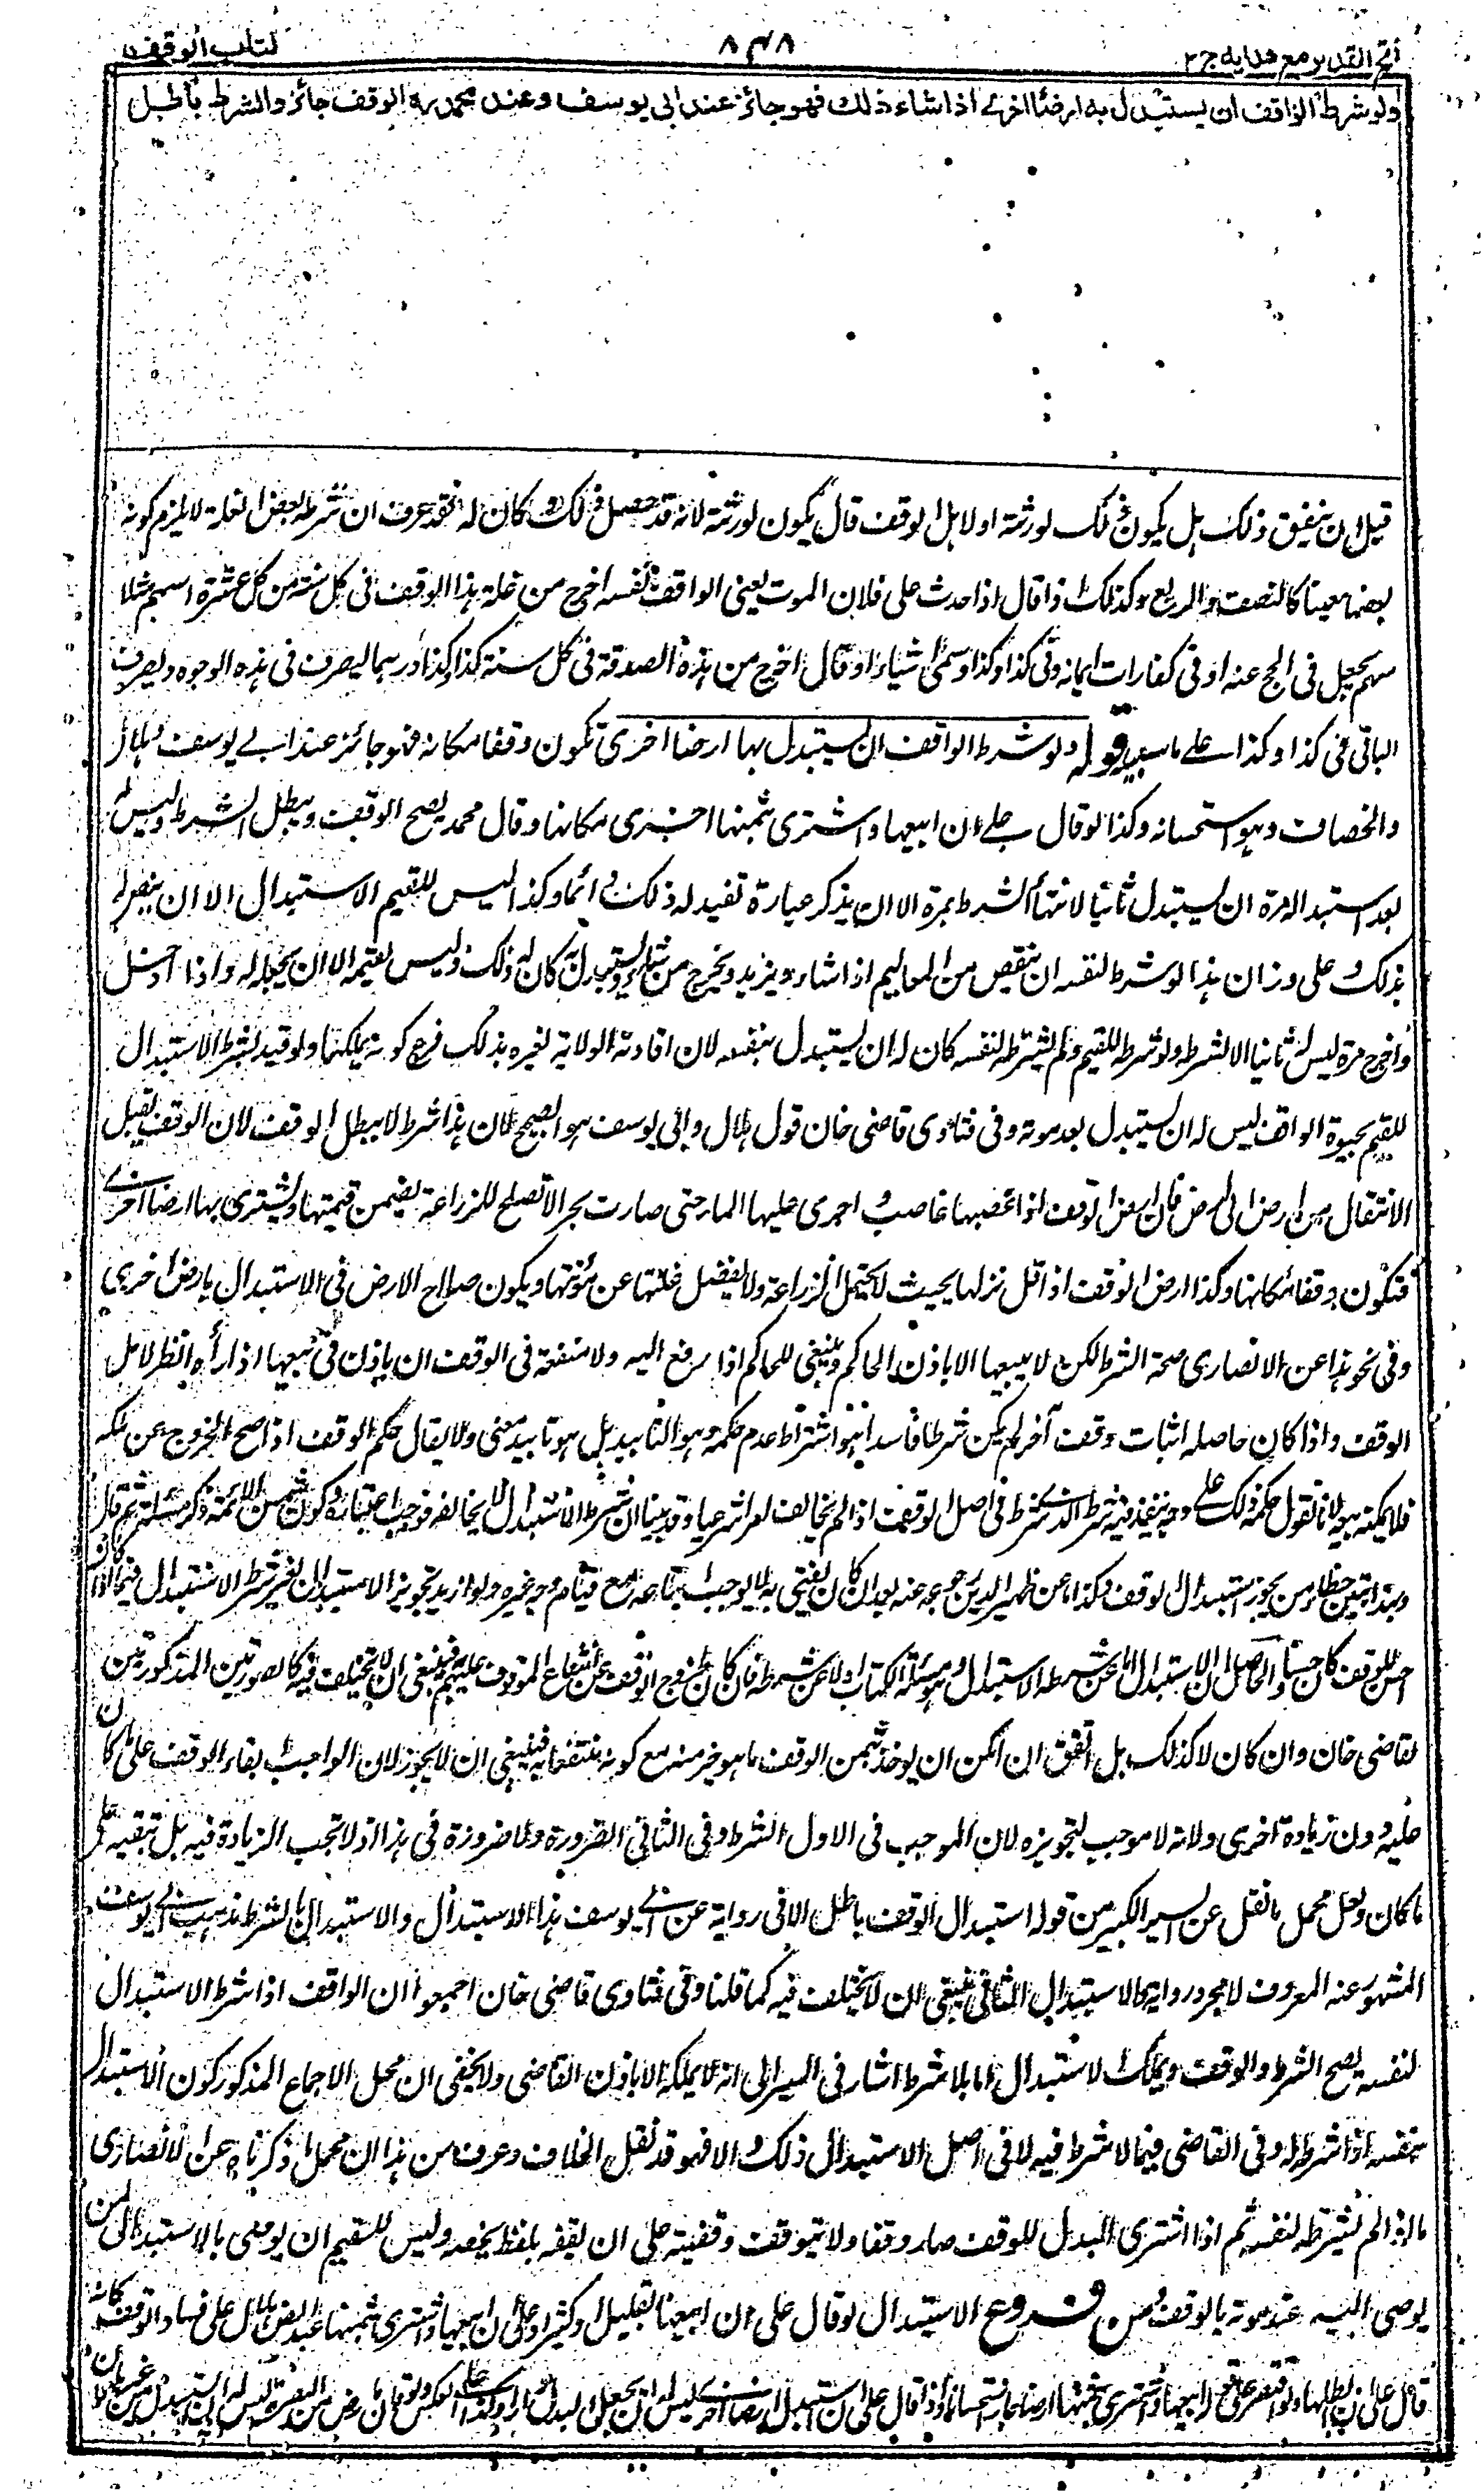 فتح القدير مع هدايه ج ٢
٨٤٨
كتاب الوقف
ولو شرط الواقف ان يستبدل به ارضا اخرى اذا شاء ذلك فهو جائز عند ابي يوسف وعند محمد رح الوقف جائز والشرط باطل
قبل ان ينفق ذلك هل يكون ذلك لورثته او لاهل الوقف قال يكون لورثته لانه قد حصل ذلك وكان له فقد عرف ان شرط بعض الغلة لا يلزم كونه
بعضها معينا كالنصف والربع وكذلك اذا قال اذا حدث على فلان الموت يعني الواقف نفسه اخرج من غلة هذا الوقف في كل سنة من كل عشرة اسهم مثلا
سهم يجعل في الحج عنه او في كفارات ايمانه وفي كذا وكذا وسمى اشياء او قال اخرج من هذه الصدقة في كل سنة كذا وكذا درهما ليصرف في هذه الوجوه ويصرف
الباقي في كذا وكذا على ما سبيله قوله ولو شرط الواقف ان يستبدل بها ارضا اخرى تكون وقفا مكانه فهو جائز عند ابي يوسف وهلال
والخصاف وهو استحسان وكذا لو قال على ان ابيعها واشترى بثمنها اخرى مكانها وقال محمد يصح الوقف ويبطل الشرط وليس له
بعد استبداله مرة ان يستبدل ثانيا لانتهاء الشرط بمرة الا ان يذكر عبارة تفيد له ذلك دائما وكذا ليس للقيم الاستبدال الا ان ينص له
بذلك وعلى وزان هذا لو شرط لنفسه ان ينقص من المعاليم اذا شاء ويزيد ويخرج من شاء ويستبدل به كان له ذلك وليس لقيمه الا ان يجعله له واذا ادخل
واخرج مرة ليس له ثانيا الا بشرطه ولو شرطه للقيم ولم يشترطه لنفسه كان له ان يستبدل بنفسه لان افادته الولاية لغيره بذلك فرع كونه يملكها ولو قيد شرط الاستبدال
للقيم بحيوة الواقف ليس له ان يستبدل بعد موته وفي فتاوى قاضي خان قول هلال وابي يوسف هو الصحيح لان هذا شرط لا يبطل الوقف لان الوقف يقبل
الانتقال من ارض الى ارض فان ارض الوقف اذا غصبها غاصب واجرى عليها الماء حتى صارت بحرا لا تصلح للزراعة يضمن قيمتها ويشترى بها ارضا اخرى
فتكون وقفا مكانها وكذا ارض الوقف اذا قل نزلها بحيث لا تحتمل الزراعة ولا تفضل غلتها عن مؤنتها ويكون صلاح الارض في الاستبدال بارض اخرى
وفي نحو هذا عن الانصارى صحة الشرط لكن لا يبيعها الا باذن الحاكم وينبغي للحاكم اذا رفع اليه ولا منفعة في الوقف ان ياذن في بيعها اذا رأه انظر لاهل
الوقف واذا كان حاصله اثبات وقف آخر لم يكن شرطا فاسدا هو اشتراط عدم حكمه وهو التابيد بل هو تابيد معنى ولا يقال حكم الوقف اذا صح الخروج عن ملكه
فلا يمكنه بيعه لانا نقول حكمه ذلك على وجه ينفذ فيه شرطه الذى شرط في اصل الوقف اذا لم يخالف امرا شرعيا وقد بينا ان شرط الاستبدال لا يخالفه فوجب اعتباره وكون شمس الائمة ذكر مسئلة ثم قال
وبهذا تبين خطأ من يجوز استبدال الوقف وكذا ما عن ظهير الدين رجوعه عنه بعد ان كان يفتى به لا يوجب اتباعه مع قيام وجه غيره ولو ازيد تجويز الاستبدال بغير شرط الاستبدال فيما اذا كان
احسن للوقف كان حسنا والحاصل ان الاستبدال اما عن شرطه الاستبدال وهو مسئلة الكتاب او لا عن شرطه فان كان لخروج الوقف عن انتفاع الموقوف عليهم فينبغي ان لا يختلف فيه كالصورتين المذكورتين
لقاضي خان وان كان لا كذلك بل اتفق ان امكن ان يوخذ بثمن الوقف ما هو خير منه مع كونه منتفعا به فينبغي ان لا يجوز لان الواجب ابقاء الوقف على ما كان
عليه دون زيادة اخرى ولانه لا موجب لتجويزه لان الموجب في الاول الشرط وفي الثاني الضرورة ولا ضرورة في هذا اذ لا تجب الزيادة فيه بل تبقيه على
ما كان ولعل محمل ما نقل عن السير الكبير من قوله استبدال الوقف باطل الا في رواية عن ابي يوسف هذا الاستبدال والاستبدال بالشرط مذهب ابي يوسف
المشهور عنه المعروف لا مجرد رواية والاستبدال الثاني ينبغي ان لا يختلف فيه كما قلنا وفي فتاوى قاضي خان اجمعوا ان الواقف اذا شرط الاستبدال
لنفسه يصح الشرط والوقف ويملك الاستبدال اما بلا شرط اشار في السير الى انه لا يملكه الا باذن القاضي ولا يخفى ان محل الاجماع المذكور كون الاستبدال
بنفسه اذا شرطه له وفي القاضي فيما لا شرط فيه لا في اصل الاستبدال ذلك والا فهو قد نقل الخلاف وعرف من هذا ان محمل ما ذكرناه عن الانصارى
ما اذا لم يشترطه لنفسه ثم اذا اشترى البدل للوقف صار وقفا ولا يتوقف وقفيته على ان يقفه بلفظ يخصه وليس للقيم ان يوصى بالاستبدال لمن
يوصى اليه عند موته بالوقف من فروع الاستبدال لو قال على ان ابيعها بقليل او كثير او على ان ابيعها واشترى بثمنها عبدا نص هلال على فساد الوقف كانه
قال على ان ابطلها ولو اقتصر على ابيعها واشترى بثمنها ارضا جاز استحسانا واذا قال على ان استبدل ارضا اخرى ليس له ان يجعل البدل دارا وكذا على العكس ولو قال بارض من البصرة ليس له ان يستبدل من غيرها